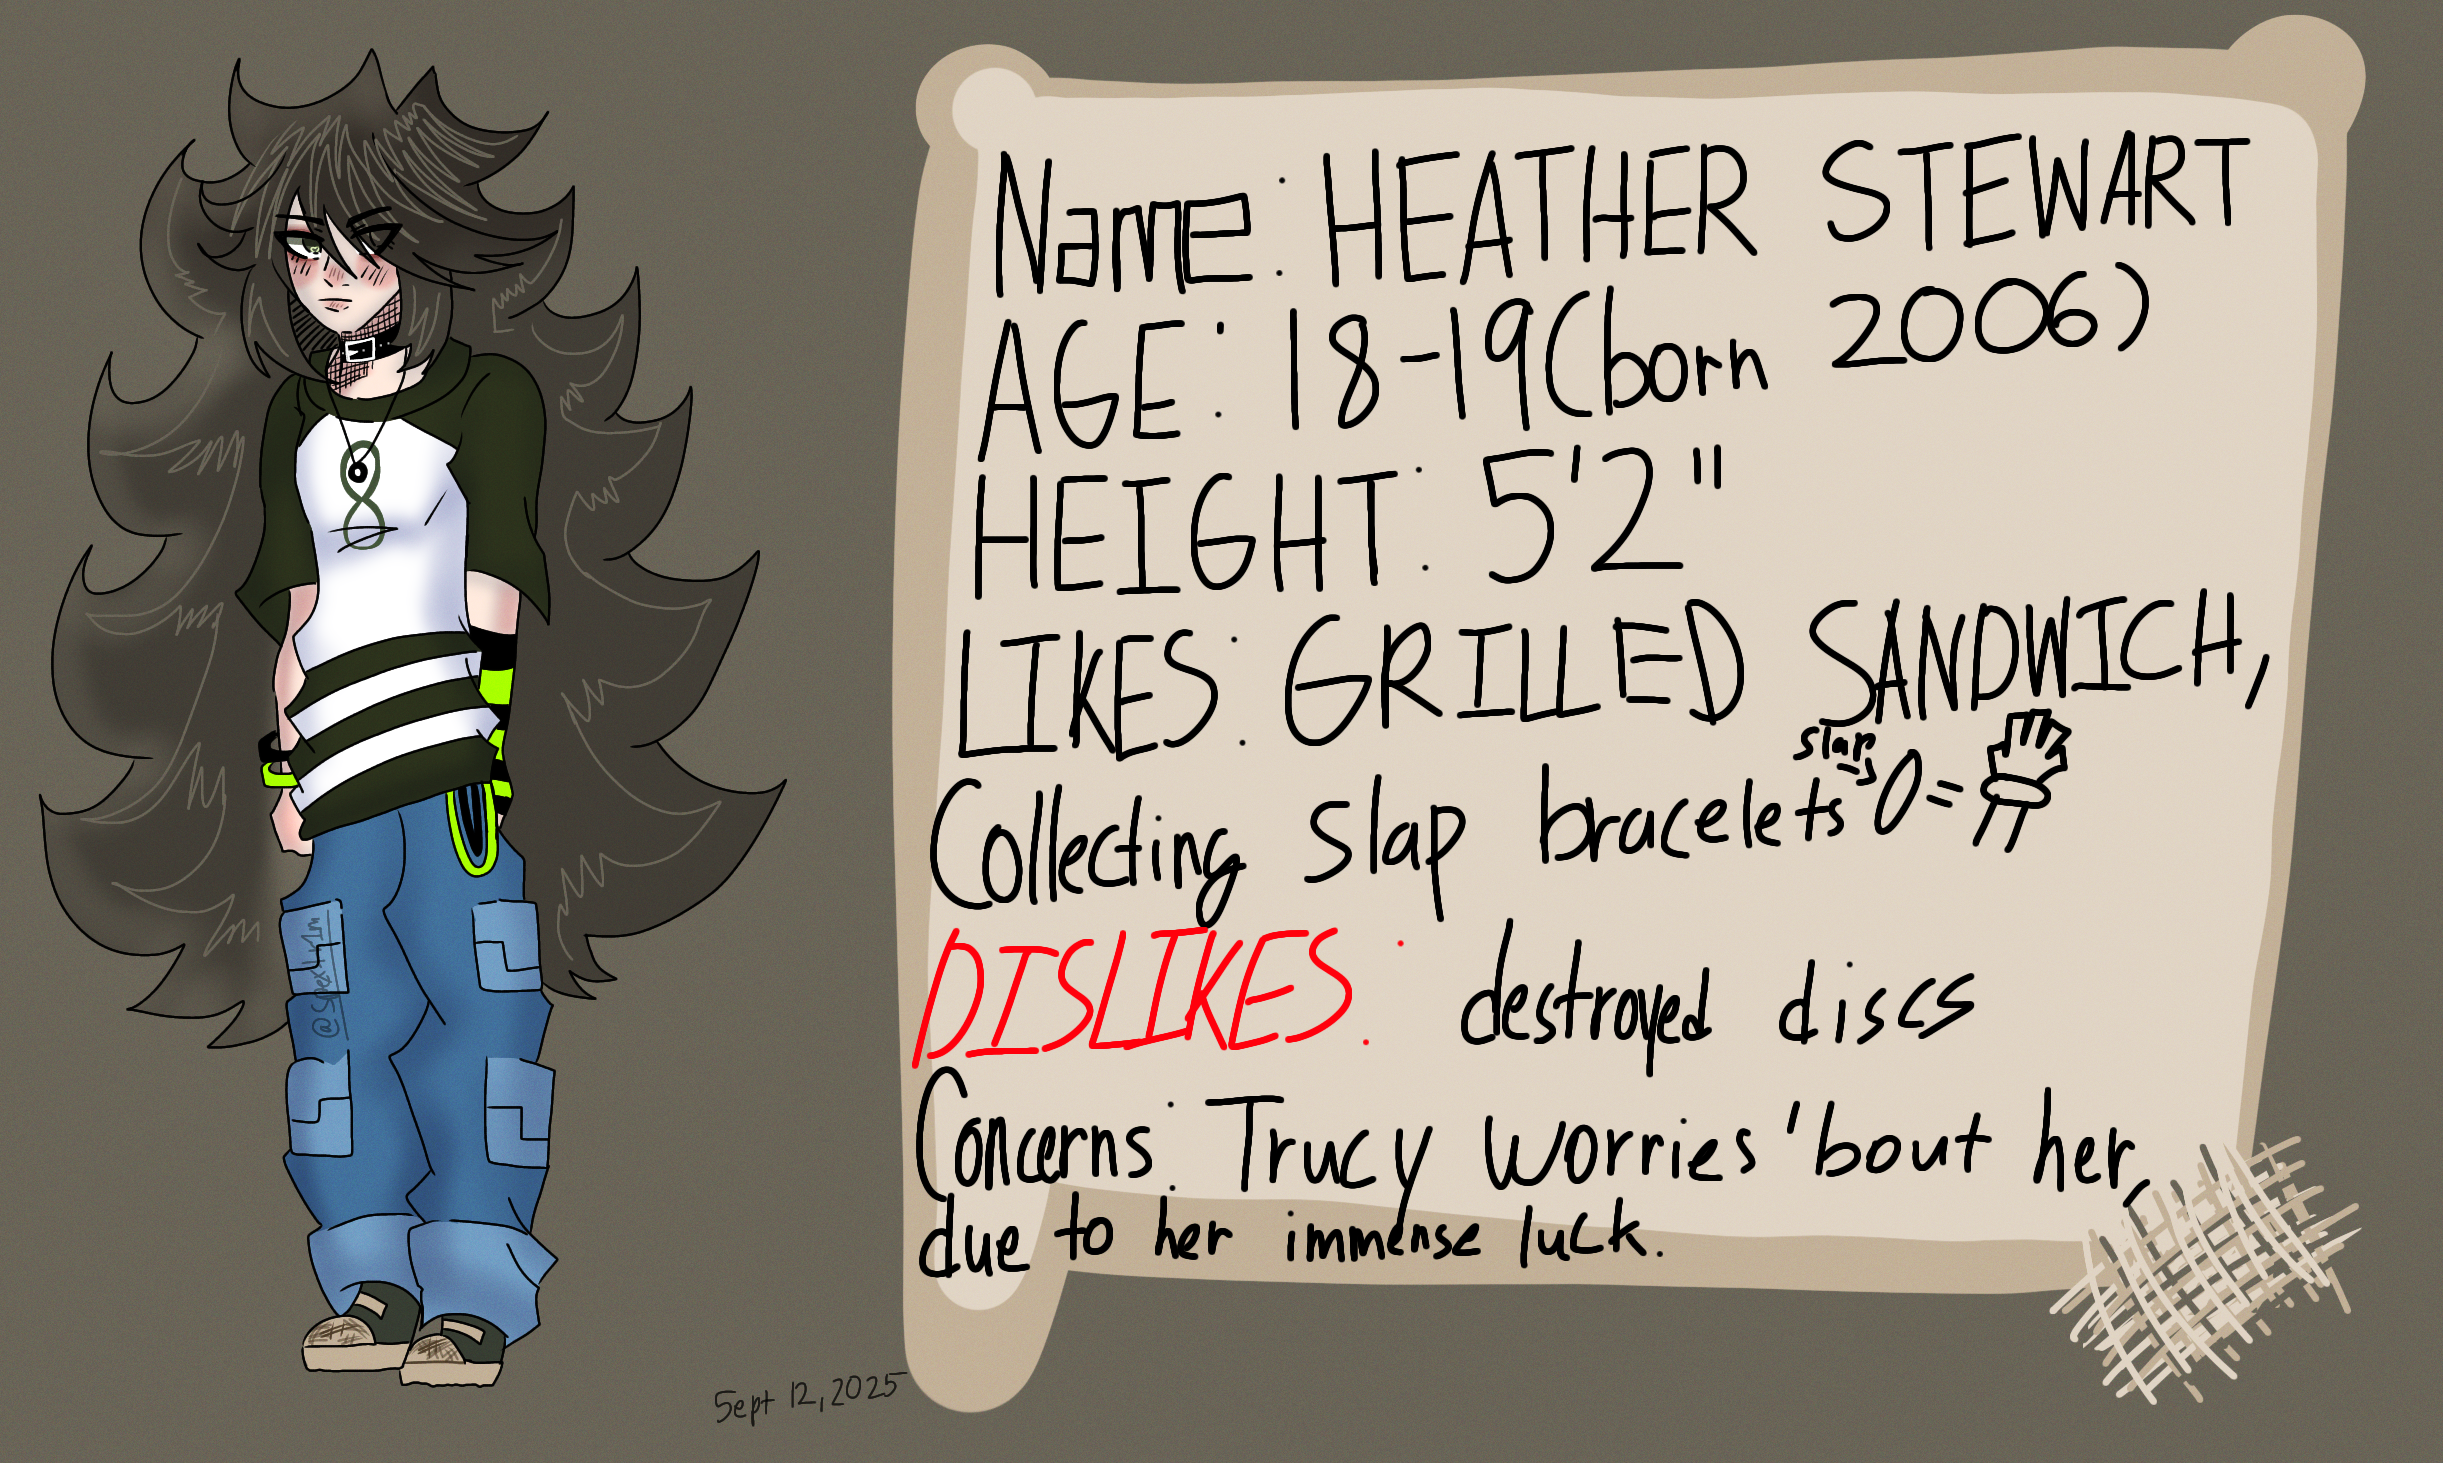 Name: HEATHER STEWART
AGE: 18-19 (born 2006)
HEIGHT: 5'2"
LIKES: GRILLED SANDWICH,
slap
Collecting slap bracelets → 0 =
DISLIKES: destroyed discs
Concerns: Trucy worries 'bout her,
due to her immense luck.
Sept 12, 2025